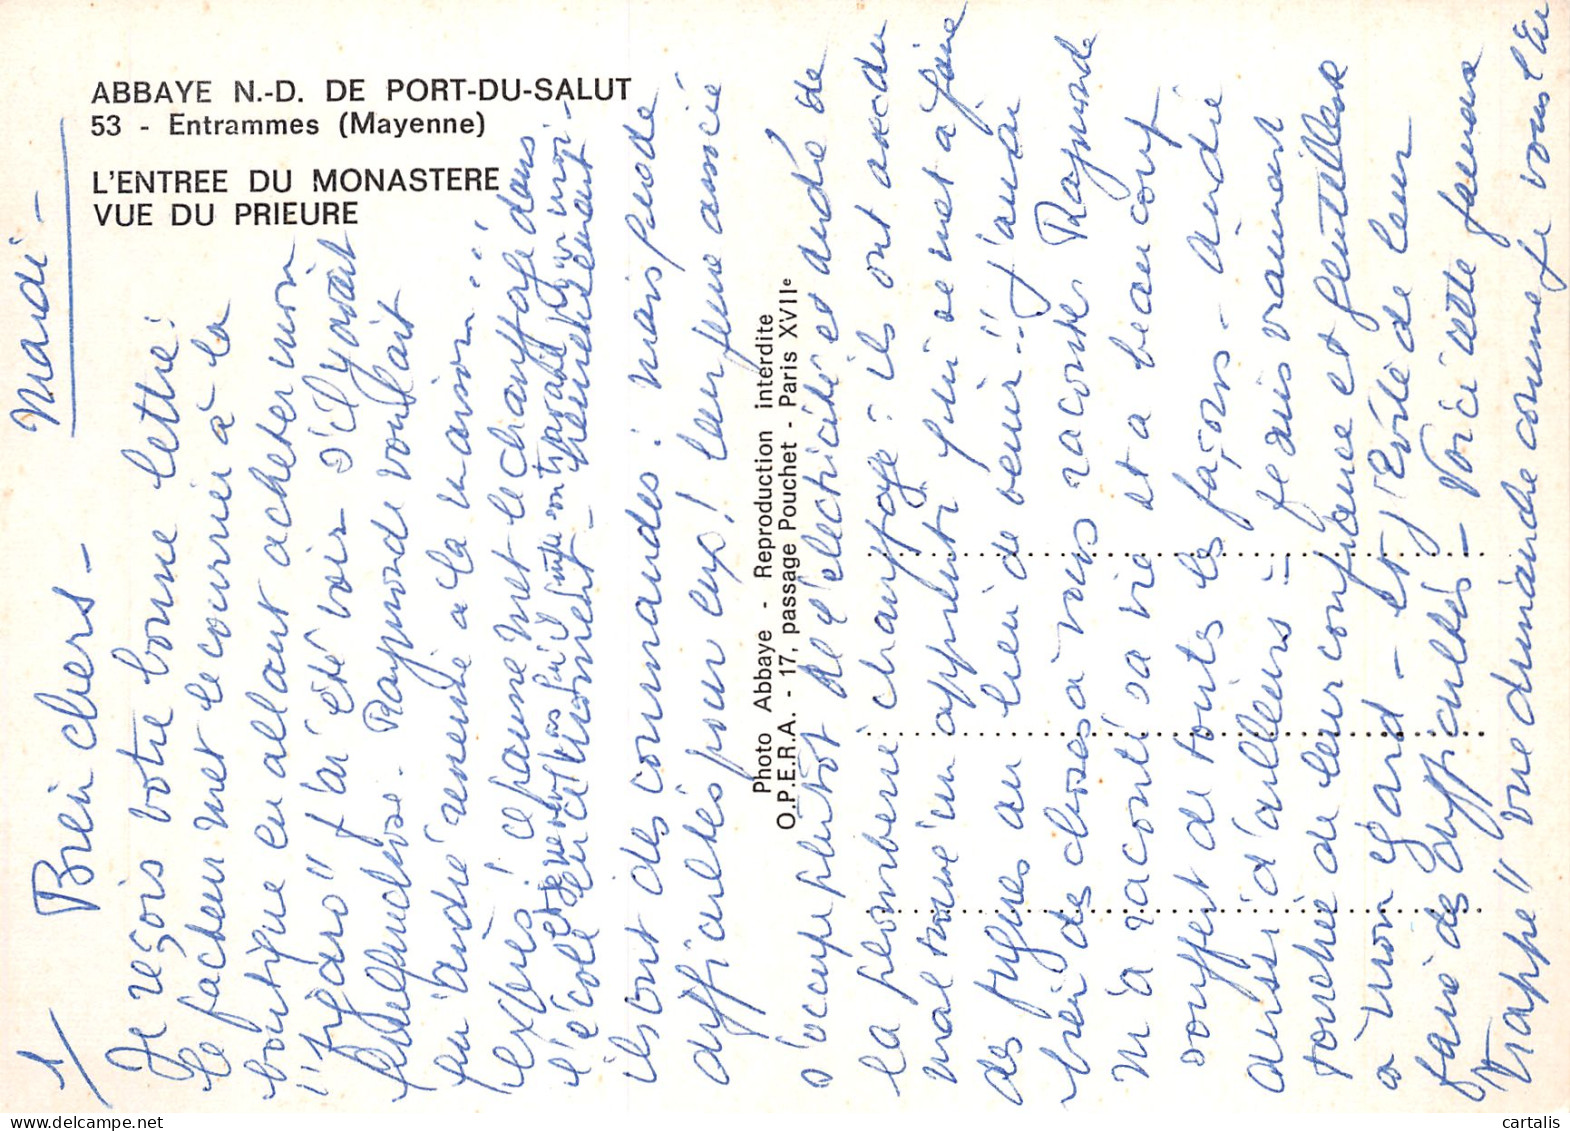 ABBAYE N.-D. DE PORT-DU-SALUT
53 - Entrammes (Mayenne)
L'ENTREE DU MONASTERE
VUE DU PRIEURE
Photo Abbaye - Reproduction interdite
O.P.E.R.A. - 17, passage Pouchet - Paris XVIIe
1/
Mardi -
Bien chers -
Je reçois votre bonne lettre!
le facteur met le courrier à la
boutique en allant acheter mon
"Figaro" j'ai été voir s'il y avait
quelque chose. Raymonde voulait
qu'André revienne à la maison...
exprès! ce pauvre met le chauffage dans
l'école
ils ont des commandes! mais peu de
difficultés pour eux! leur jeune associé
s'occupe plutôt de l'électricité et André de
la plomberie chauffage: ils ont avec du
mal trouvé un apprenti qui se met à faire
des fugues au lieu de venir!! j'aurai
bien des choses à vous raconter Raymonde
m'a raconté sa vie et a beaucoup
souffert de toutes les façons - André
aussi d'ailleurs!! je suis vraiment
touchée de leur confiance et gentillesse
à mon égard - et
des difficultés - Voici cette fameuse
Trappe" une demande comme je vous l'ai